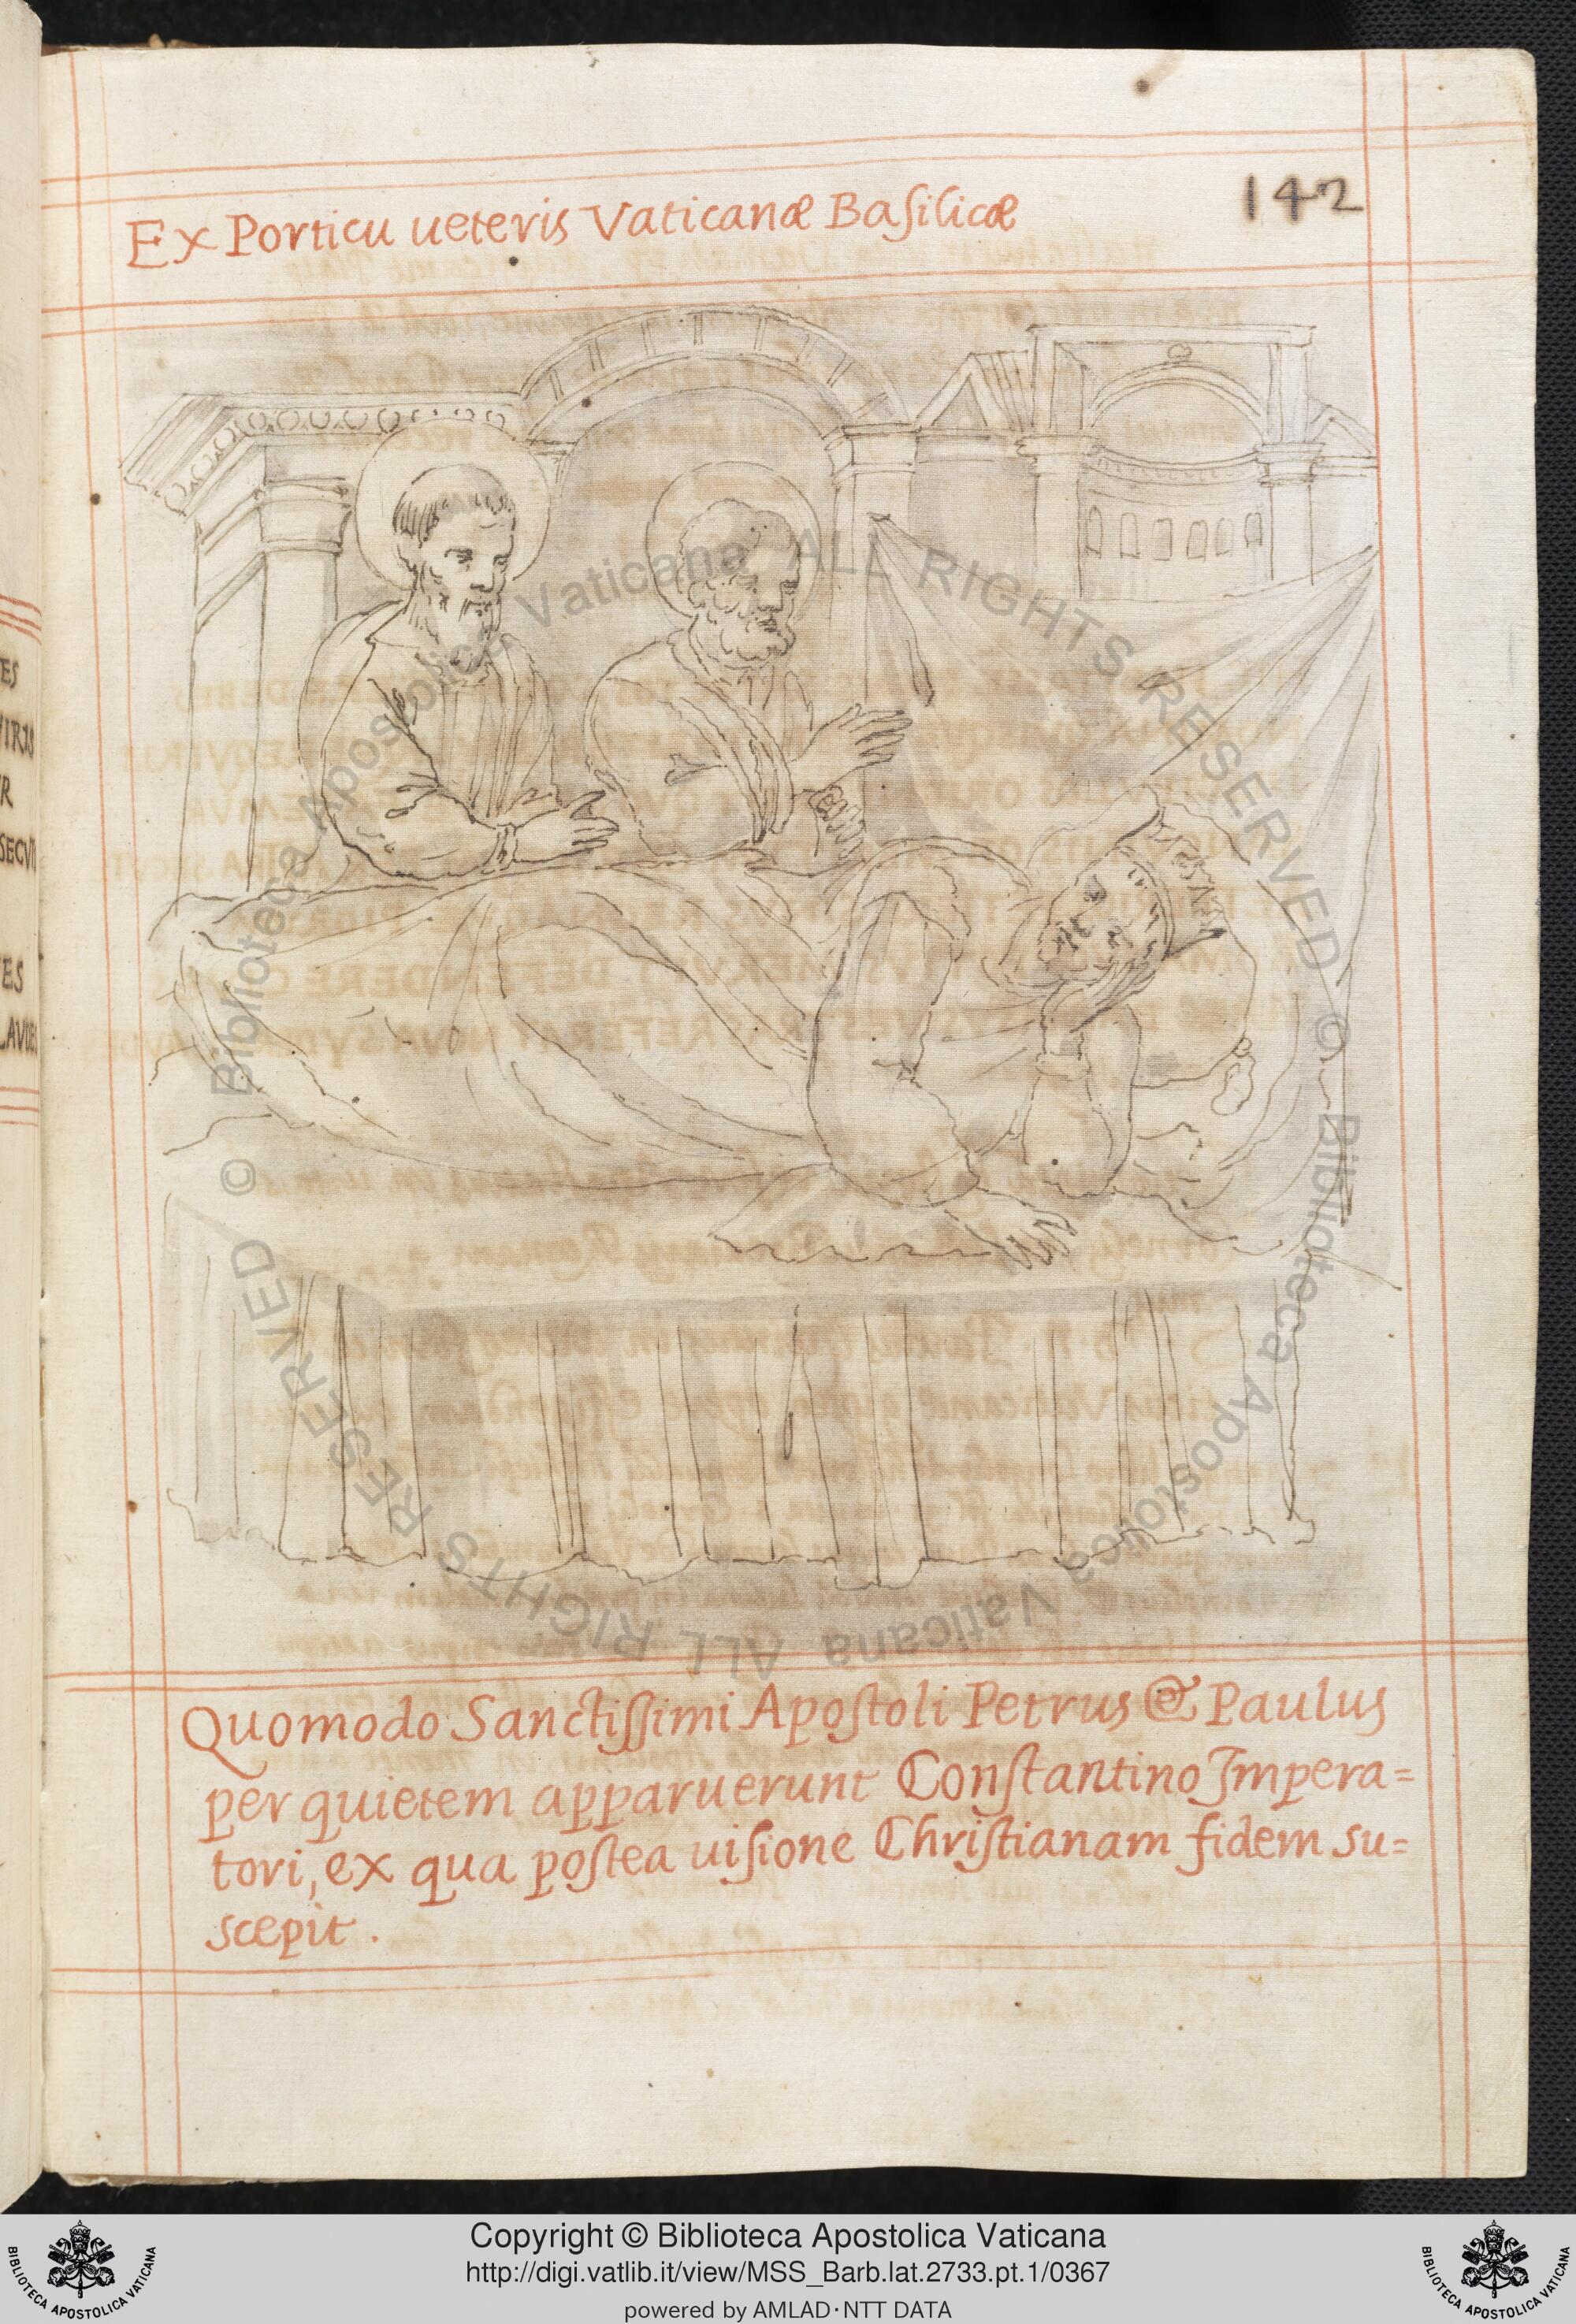 Ex Porticu ueteris Vaticanæ Basilicæ
142
Quomodo Sanctissimi Apostoli Petrus & Paulus
per quietem apparuerunt Constantino Impera=
tori, ex qua postea uisione Christianam fidem su=
scepit.
ES
VIRIS
R
SECVT
ES
© Biblioteca Apostolica Vaticana ALL RIGHTS RESERVED © Biblioteca Apostolica Vaticana ALL RIGHTS RESERVED
Copyright © Biblioteca Apostolica Vaticana
http://digi.vatlib.it/view/MSS_Barb.lat.2733.pt.1/0367
powered by AMLAD·NTT DATA
BIBLIOTECA APOSTOLICA VATICANA
BIBLIOTECA APOSTOLICA VATICANA